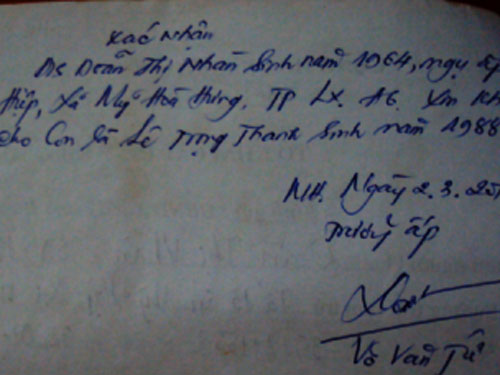 xác nhận
Doãn Thị Nhàn Sinh năm 1964, ngụ ấp
Hiệp, Xã Mỹ Hoà Hưng. TP LX. AG. Xin
cho Con là Lê Trọng Thanh Sinh năm 1988
MH. Ngày 2.3.20
Trưởng ấp
Võ Văn Tư